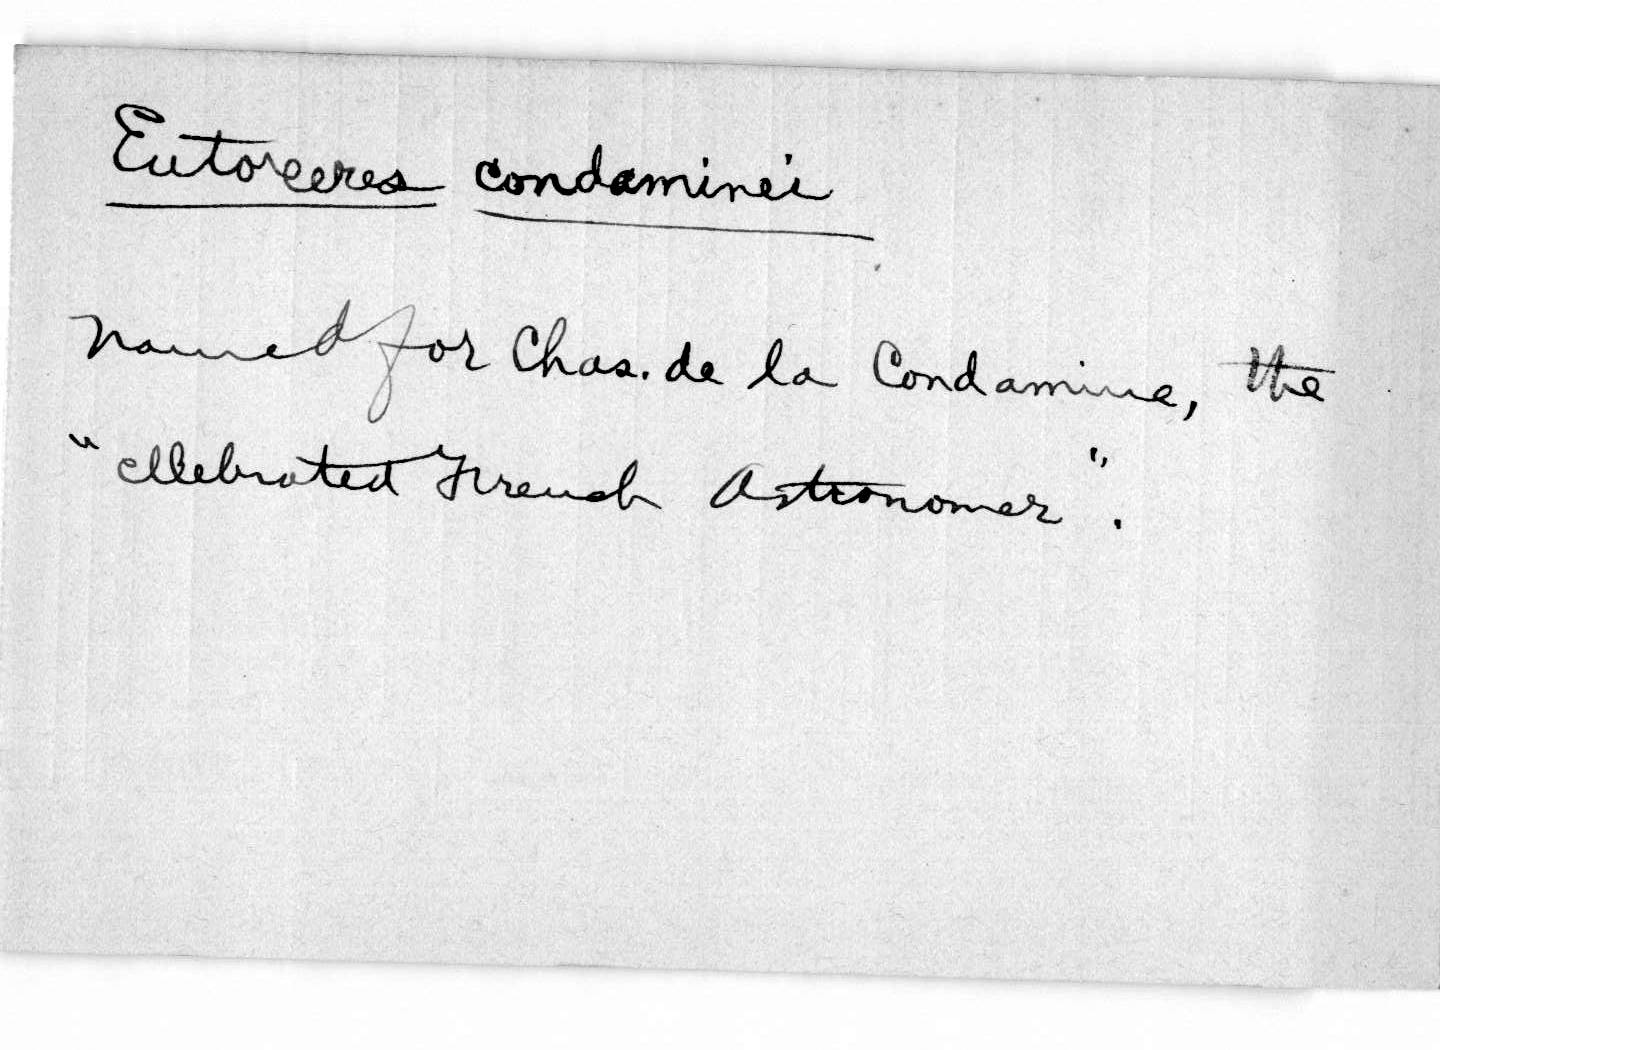 Eutoxeres condaminei
named for Chas. de la Condamine, the
"cellebrated French Astronomer".